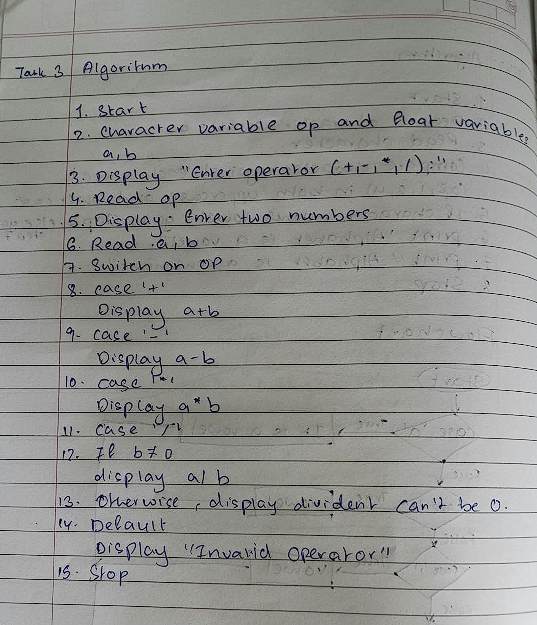 Task 3 Algorithm
1. Start
2. Character variable op and float variables
a,b
3. Display "Enter operator (+,-,*,/):"
4. Read op
5. Display: Enter two numbers
6. Read a,b
7. Switch on op
8. case '+'
Display a+b
9. case '-'
Display a-b
10. case '*'
Display a*b
11. case '/'
12. If b≠0
display a/b
13. Otherwise, display divident can't be 0.
14. Default
Display "Invalid Operator"
15. Stop